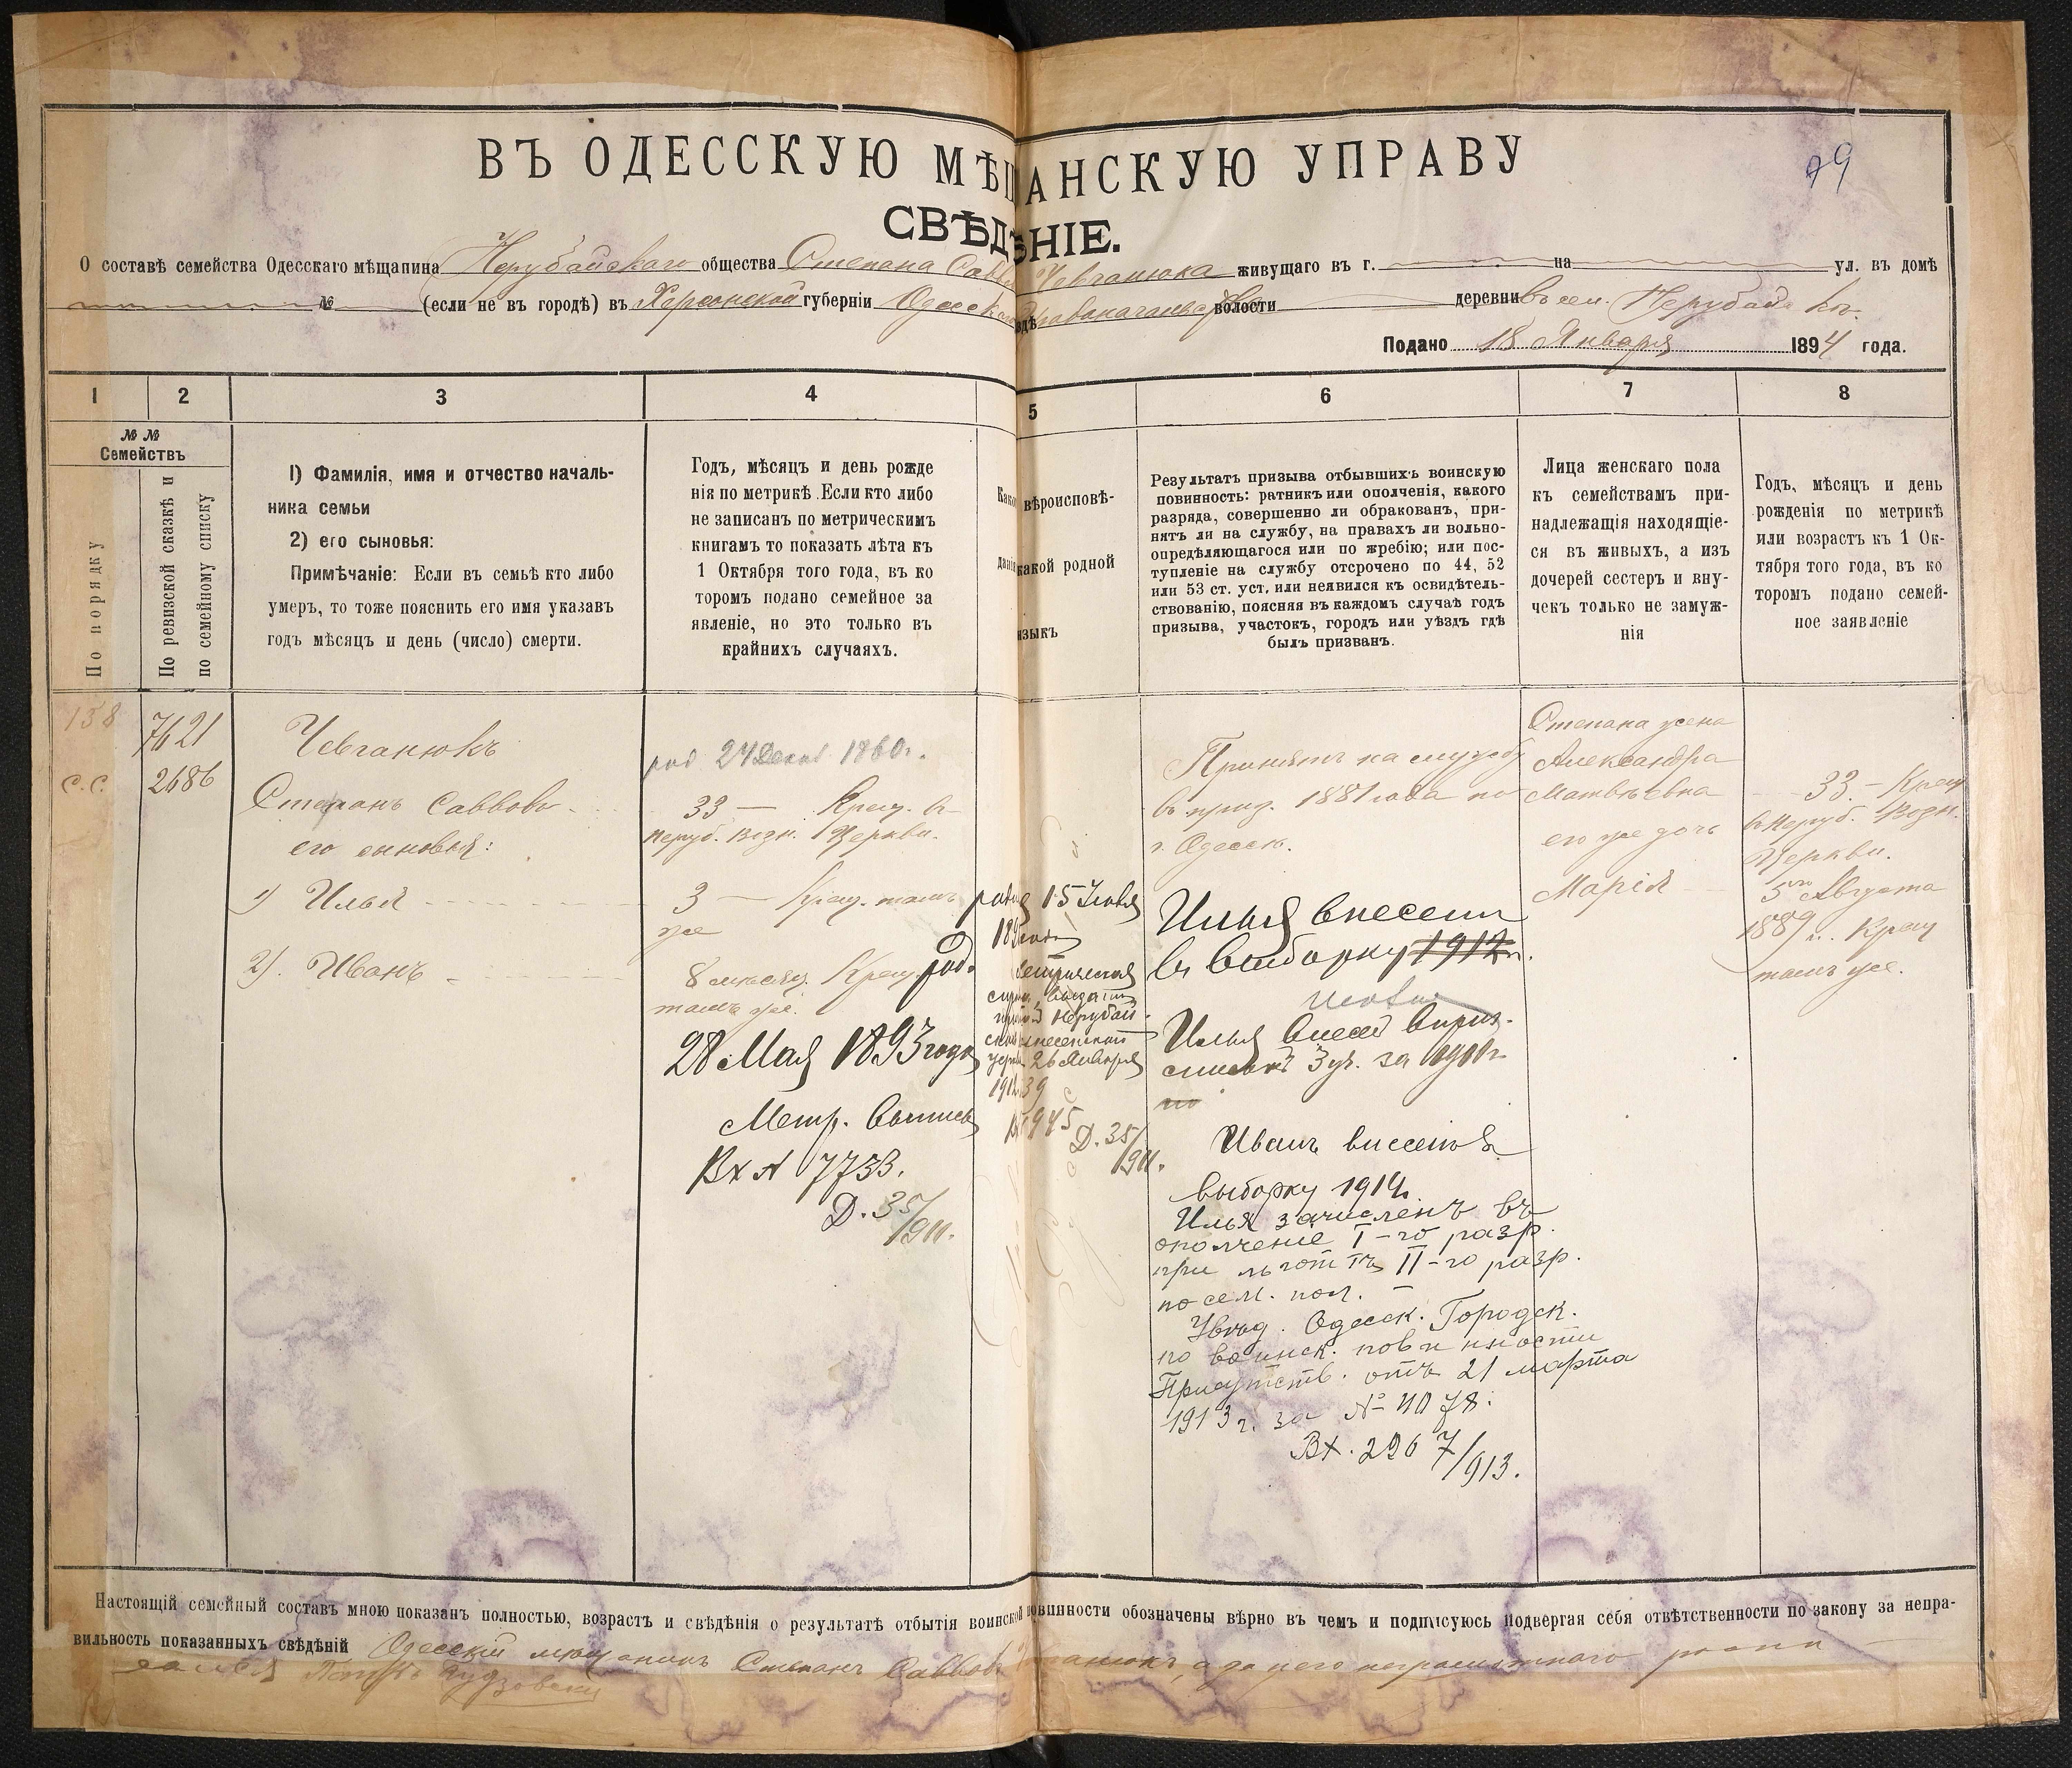 79
ВЪ ОДЕССКУЮ МѢЩАНСКУЮ УПРАВУ
СВѢДѢНІЕ.
О составѣ семейства Одесскаго мѣщанина Нерубайскаго общества Степана Саввова Чевганюка живущаго въ г. на ул. въ домѣ
№ (если не въ городѣ) въ Херсонской губерніи Одесскаго уѣздѣ волости деревни въ сел. Нерубайскъ.
Подано 18 Января 1894 года.
1 2 3 4 5 6 7 8
№ №
Семействъ
По порядку
По ревизской сказкѣ и
по семейному списку
1) Фамилія, имя и отчество началь-
ника семьи
2) его сыновья:
Примѣчаніе: Если въ семьѣ кто либо
умеръ, то тоже пояснить его имя указавъ
годъ мѣсяцъ и день (число) смерти.
Годъ, мѣсяцъ и день рожде
нія по метрикѣ. Если кто либо
не записанъ по метрическимъ
книгамъ то показать лѣта къ
1 Октября того года, въ ко
торомъ подано семейное за
явленіе, но это только въ
крайнихъ случаяхъ.
Какого вѣроисповѣ-
данія какой родной
языкъ
Результатъ призыва отбывшихъ воинскую
повинность: ратникъ или ополченія, какого
разряда, совершенно ли обракованъ, при-
нятъ ли на службу, на правахъ ли вольно-
опредѣляющагося или по жребію; или пос-
тупленіе на службу отсрочено по 44, 52
или 53 ст. уст. или неявился къ освидѣтель-
ствованію, поясняя въ каждомъ случаѣ годъ
призыва, участокъ, городъ или уѣздъ гдѣ
былъ призванъ.
Лица женскаго пола
къ семействамъ при-
надлежащія находящіе-
ся въ живыхъ, а изъ
дочерей сестеръ и вну-
чекъ только не замуж-
нія
Годъ, мѣсяцъ и день
рожденія по метрикѣ
или возрастъ къ 1 Ок-
тября того года, въ ко
торомъ подано семей-
ное заявленіе
138
с.с.
7621
2686
Чевганюкъ
Степанъ Саввовъ
его сыновья:
1) Илья
2). Иванъ
род 24 Декаб 1860г.
33 — Крещ. в
Неруб. Возн. Церкви.
3 — Крещ. тамъ
же
8 месяц. Крещ.
тамъ же.
род.
28 Мая 1893 года
Метр. выпись
Вх № 7733.
Д. 35/911.
15 Іюля
метрическая
26 Января
Д. 35/911.
Принятъ на службу
въ приз. 1881 года по
г. Одессѣ.
Илья внесенъ
въ выборку 1912 г.
Илья внесен в приз.
списокъ 3 уч. за
по
Иванъ внесенъ в
выборку 1914г.
Илья зачисленъ въ
ополченіе I-го разр.
при льготѣ II-го разр.
по сем. пол. —
Увѣд. Одесск. Городск.
по воинск. повинности
Присутств. отъ 21 марта
1913 г. за № 4078.
Вх. 2967/913.
Степана жена
Александра
Матвѣевна
его же дочь
Марія
33 — Крещ
в Неруб. Возн.
Церкви.
5го Августа
1889 г. Крещ
тамъ же.
Настоящій семейный составъ мною показанъ полностью, возрастъ и свѣдѣнія о результатѣ отбытія воинской повинности обозначены вѣрно въ чемъ и подписуюсь подвергая себя отвѣтственности по закону за непра-
вильность показанныхъ свѣдѣній Одесскій мѣщанинъ Степанъ Саввовъ Чевганюкъ, а за него неграмотного роспи
сался